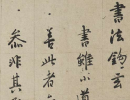 書法鈎玄
書雖小道
善此者
非其